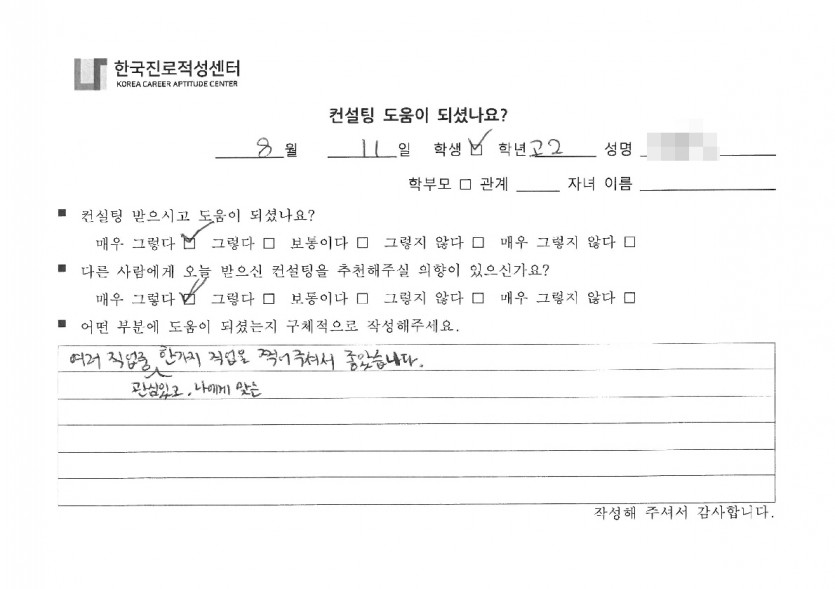 한국진로적성센터
KOREA CAREER APTITUDE CENTER
컨설팅 도움이 되셨나요?
8 월 11 일 학생 ☑ 학년 고2 성명
학부모 □ 관계 자녀 이름
■ 컨설팅 받으시고 도움이 되셨나요?
매우 그렇다 ☑ 그렇다 □ 보통이다 □ 그렇지 않다 □ 매우 그렇지 않다 □
■ 다른 사람에게 오늘 받으신 컨설팅을 추천해주실 의향이 있으신가요?
매우 그렇다 ☑ 그렇다 □ 보통이다 □ 그렇지 않다 □ 매우 그렇지 않다 □
■ 어떤 부분에 도움이 되셨는지 구체적으로 작성해주세요.
여러 직업중 한가지 직업을 찍어주셔서 좋았습니다.
관심있고, 나에게 맞는
작성해 주셔서 감사합니다.